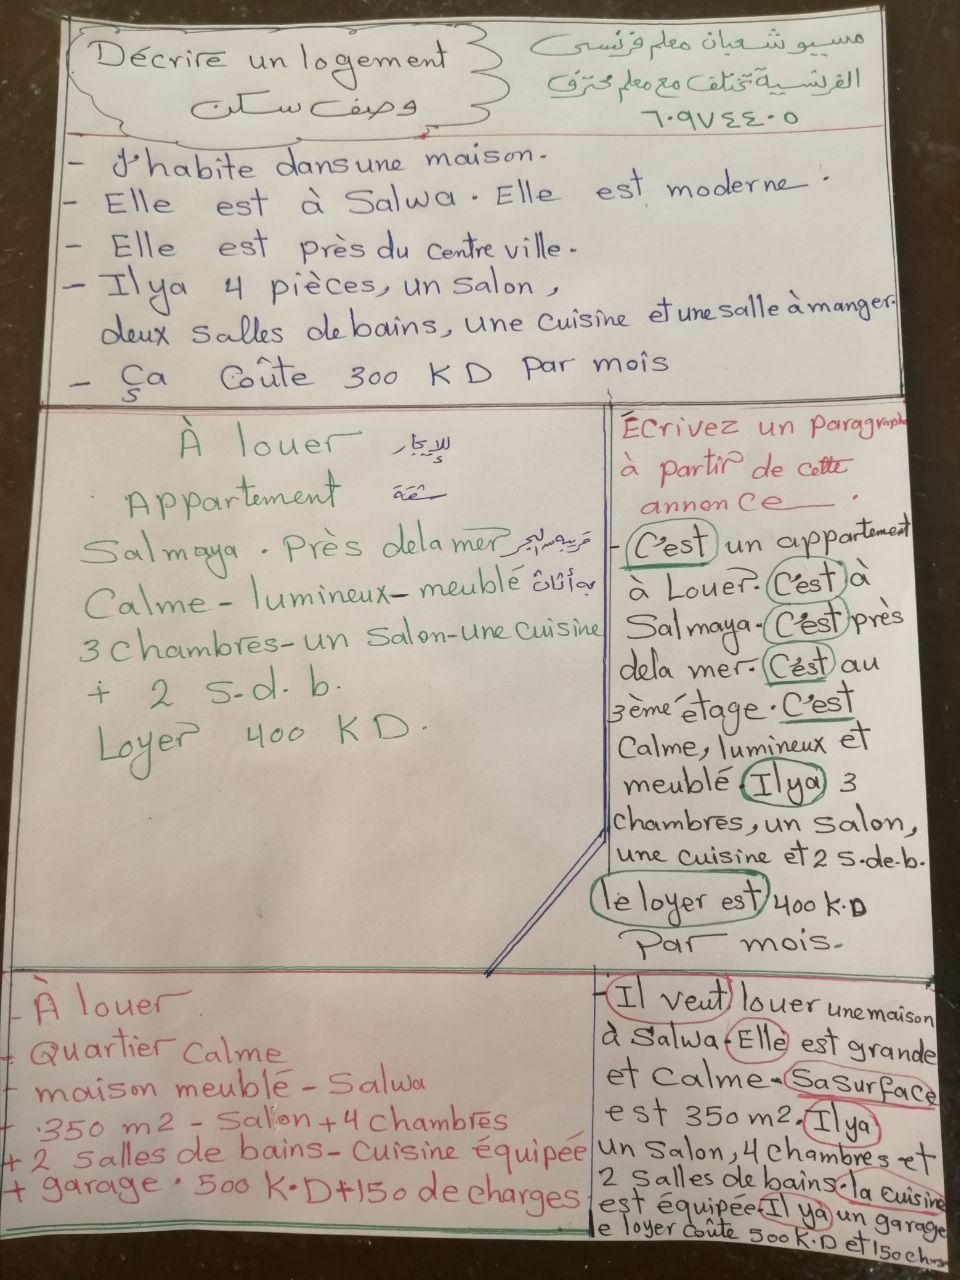 Décrire un logement
وصف سكن
مسيو شعبان معلم فرنسي
الفرنسية تختلف مع معلم محترف
٦٠٩٧٤٤٠٥
- J'habite dans une maison.
- Elle est à Salwa. Elle est moderne.
- Elle est près du centre ville.
- Il ya 4 pièces, un salon,
deux salles de bains, une cuisine et une salle à manger.
- Ça coûte 300 KD par mois
À louer للإيجار
Appartement شقة
Salmaya. Près de la mer قريبة من البحر
Calme - lumineux - meublé به أثاث
3 chambres - un salon - une cuisine
+ 2 s.d.b.
Loyer 400 KD.
Écrivez un paragraphe
à partir de cette
annonce.
- C'est un appartement
à Louer. C'est à
Salmaya. C'est près
de la mer. C'est au
3ème étage. C'est
Calme, lumineux et
meublé. Il ya 3
chambres, un salon,
une cuisine et 2 s.de.b.
le loyer est 400 K.D
Par mois.
- À louer
- Quartier Calme
- maison meublé - Salwa
- .350 m2 - Salon + 4 chambres
+ 2 salles de bains - Cuisine équipée
+ garage. 500 K.D + 150 de charges
- Il veut louer une maison
à Salwa. Elle est grande
et Calme. Sa Surface
est 350 m2. Il ya
un salon, 4 chambres et
2 salles de bains. la cuisine
est équipée. Il ya un garage
le loyer coûte 500 K.D et 150